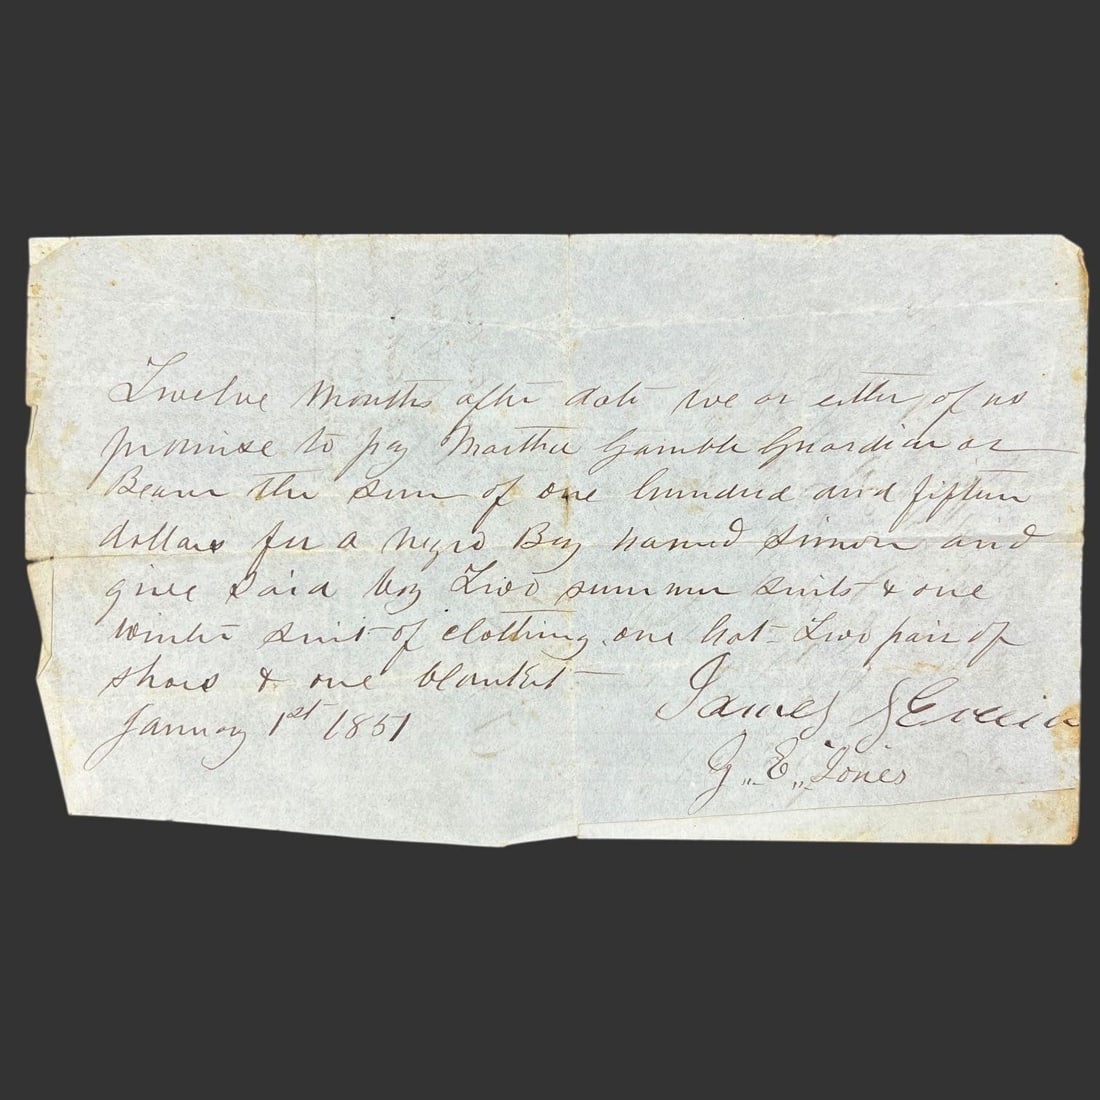 Twelve Months after date we or either of us
promise to pay Martha Gamble Guardian or
Bearer the sum of one hundred and fifteen
dollars for a negro Boy named Simon and
give said boy Two summer suits & one
winter suit of clothing one hat Two pair of
shoes & one blanket
January 1st 1851
James
G. E. Jones